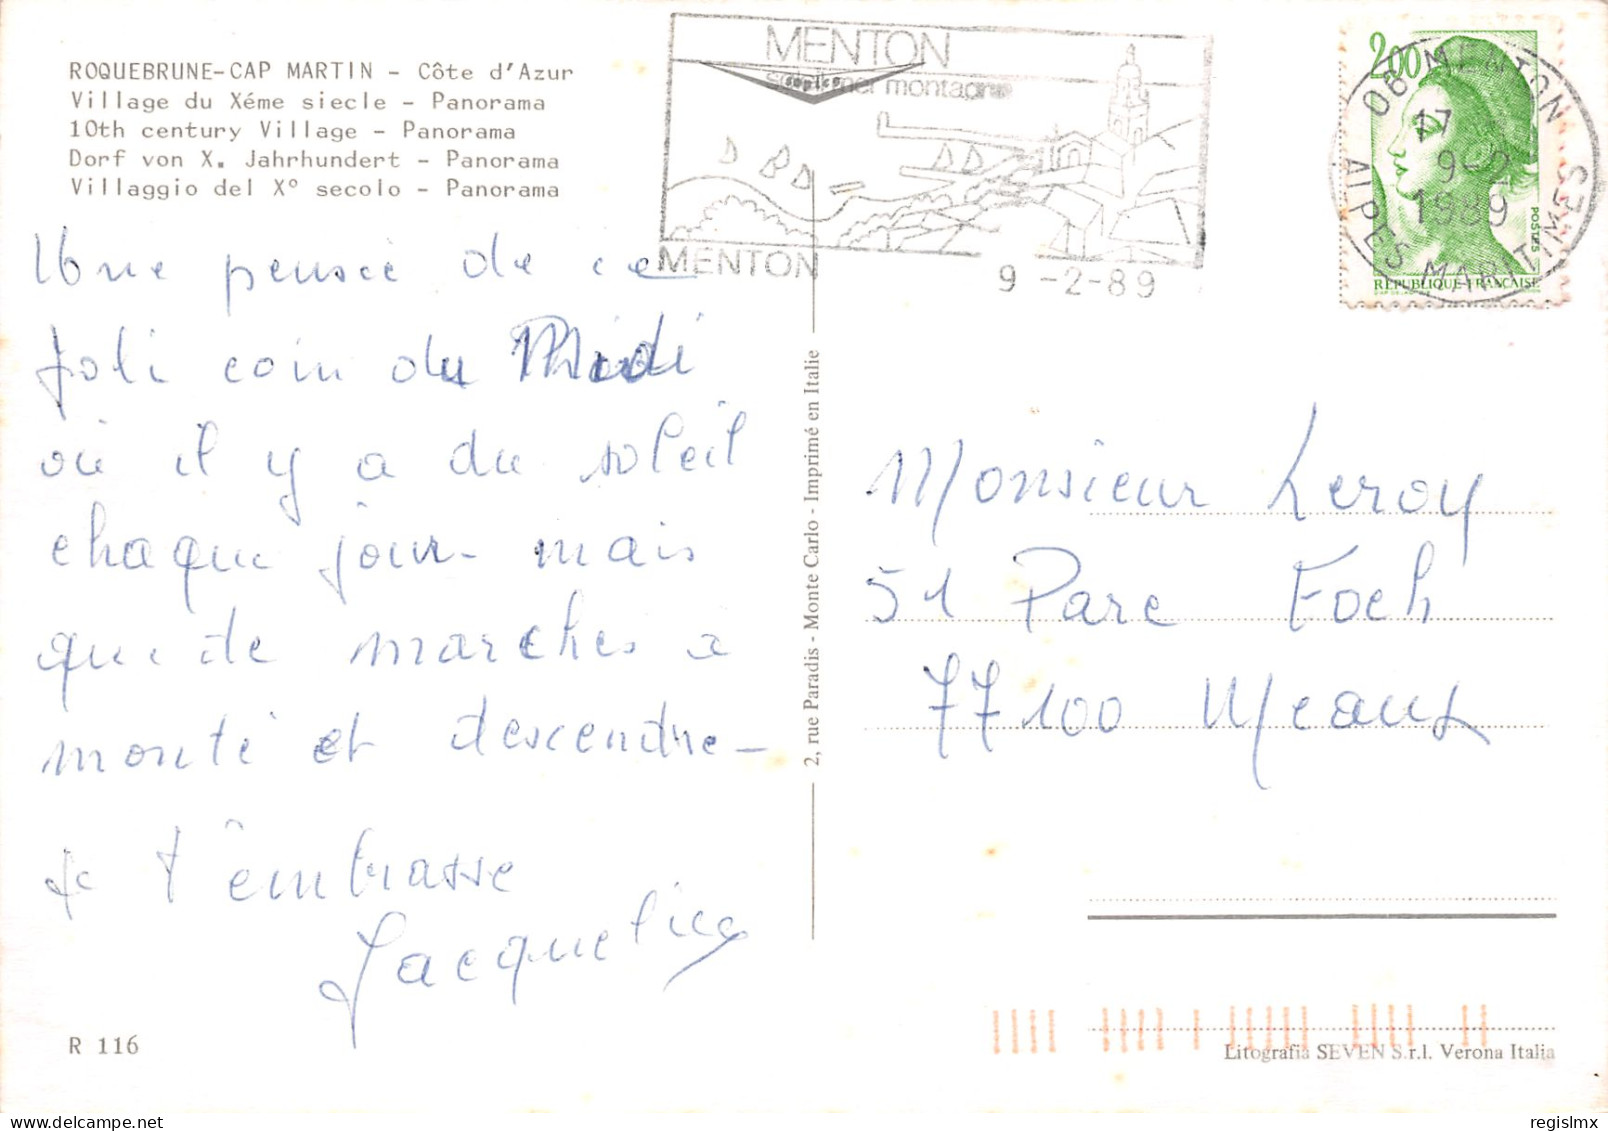 ROQUEBRUNE-CAP MARTIN - Côte d'Azur
Village du Xéme siecle - Panorama
10th century Village - Panorama
Dorf von X. Jahrhundert - Panorama
Villaggio del X° secolo - Panorama
Une pensée de ce
joli coin du Midi
où il y a du soleil
chaque jour - mais
que de marches a
monté et descendre -
Je t'embrasse
Jacqueline
R 116
MENTON
soleil mer montagne
sopico
MENTON
9 -2-89
2, rue Paradis - Monte Carlo - Imprimé en Italie
2,00
POSTES
REPUBLIQUE FRANÇAISE
06 MENTON
17
9-2
1989
ALPES MARITIMES
Monsieur Leroy
51 Parc Foch
77100 Meaux
Litografia SEVEN S.r.l. Verona Italia
delcampe.net
regislmx